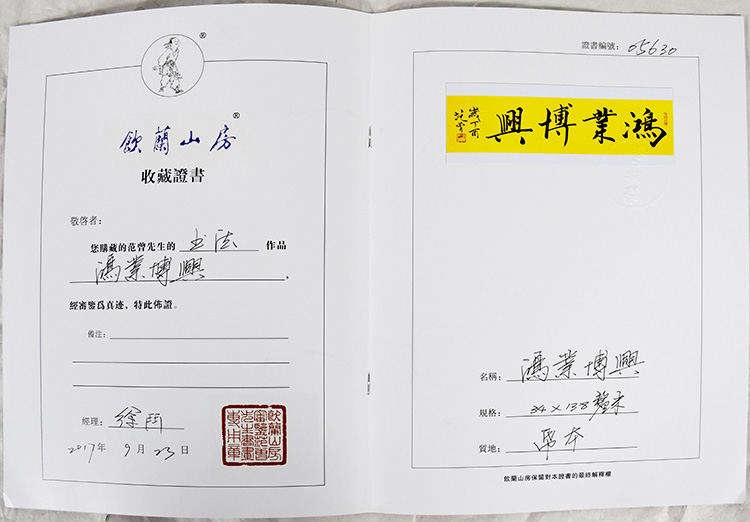 ®
飲蘭山房®
收藏證書
敬啓者：
您購藏的范曾先生的 书法 作品
鴻業博興 。
經審鑒爲真迹，特此佈證。
備注：
經理：
2017年 9月23日
飲蘭山房
審鑒范曾
先生書畫
專用章
證書編號：05630
鴻業博興
歲丁酉
范曾
名稱：鴻業博興
規格：34×138 釐米
質地：紙本
飲蘭山房保留對本證書的最終解釋權